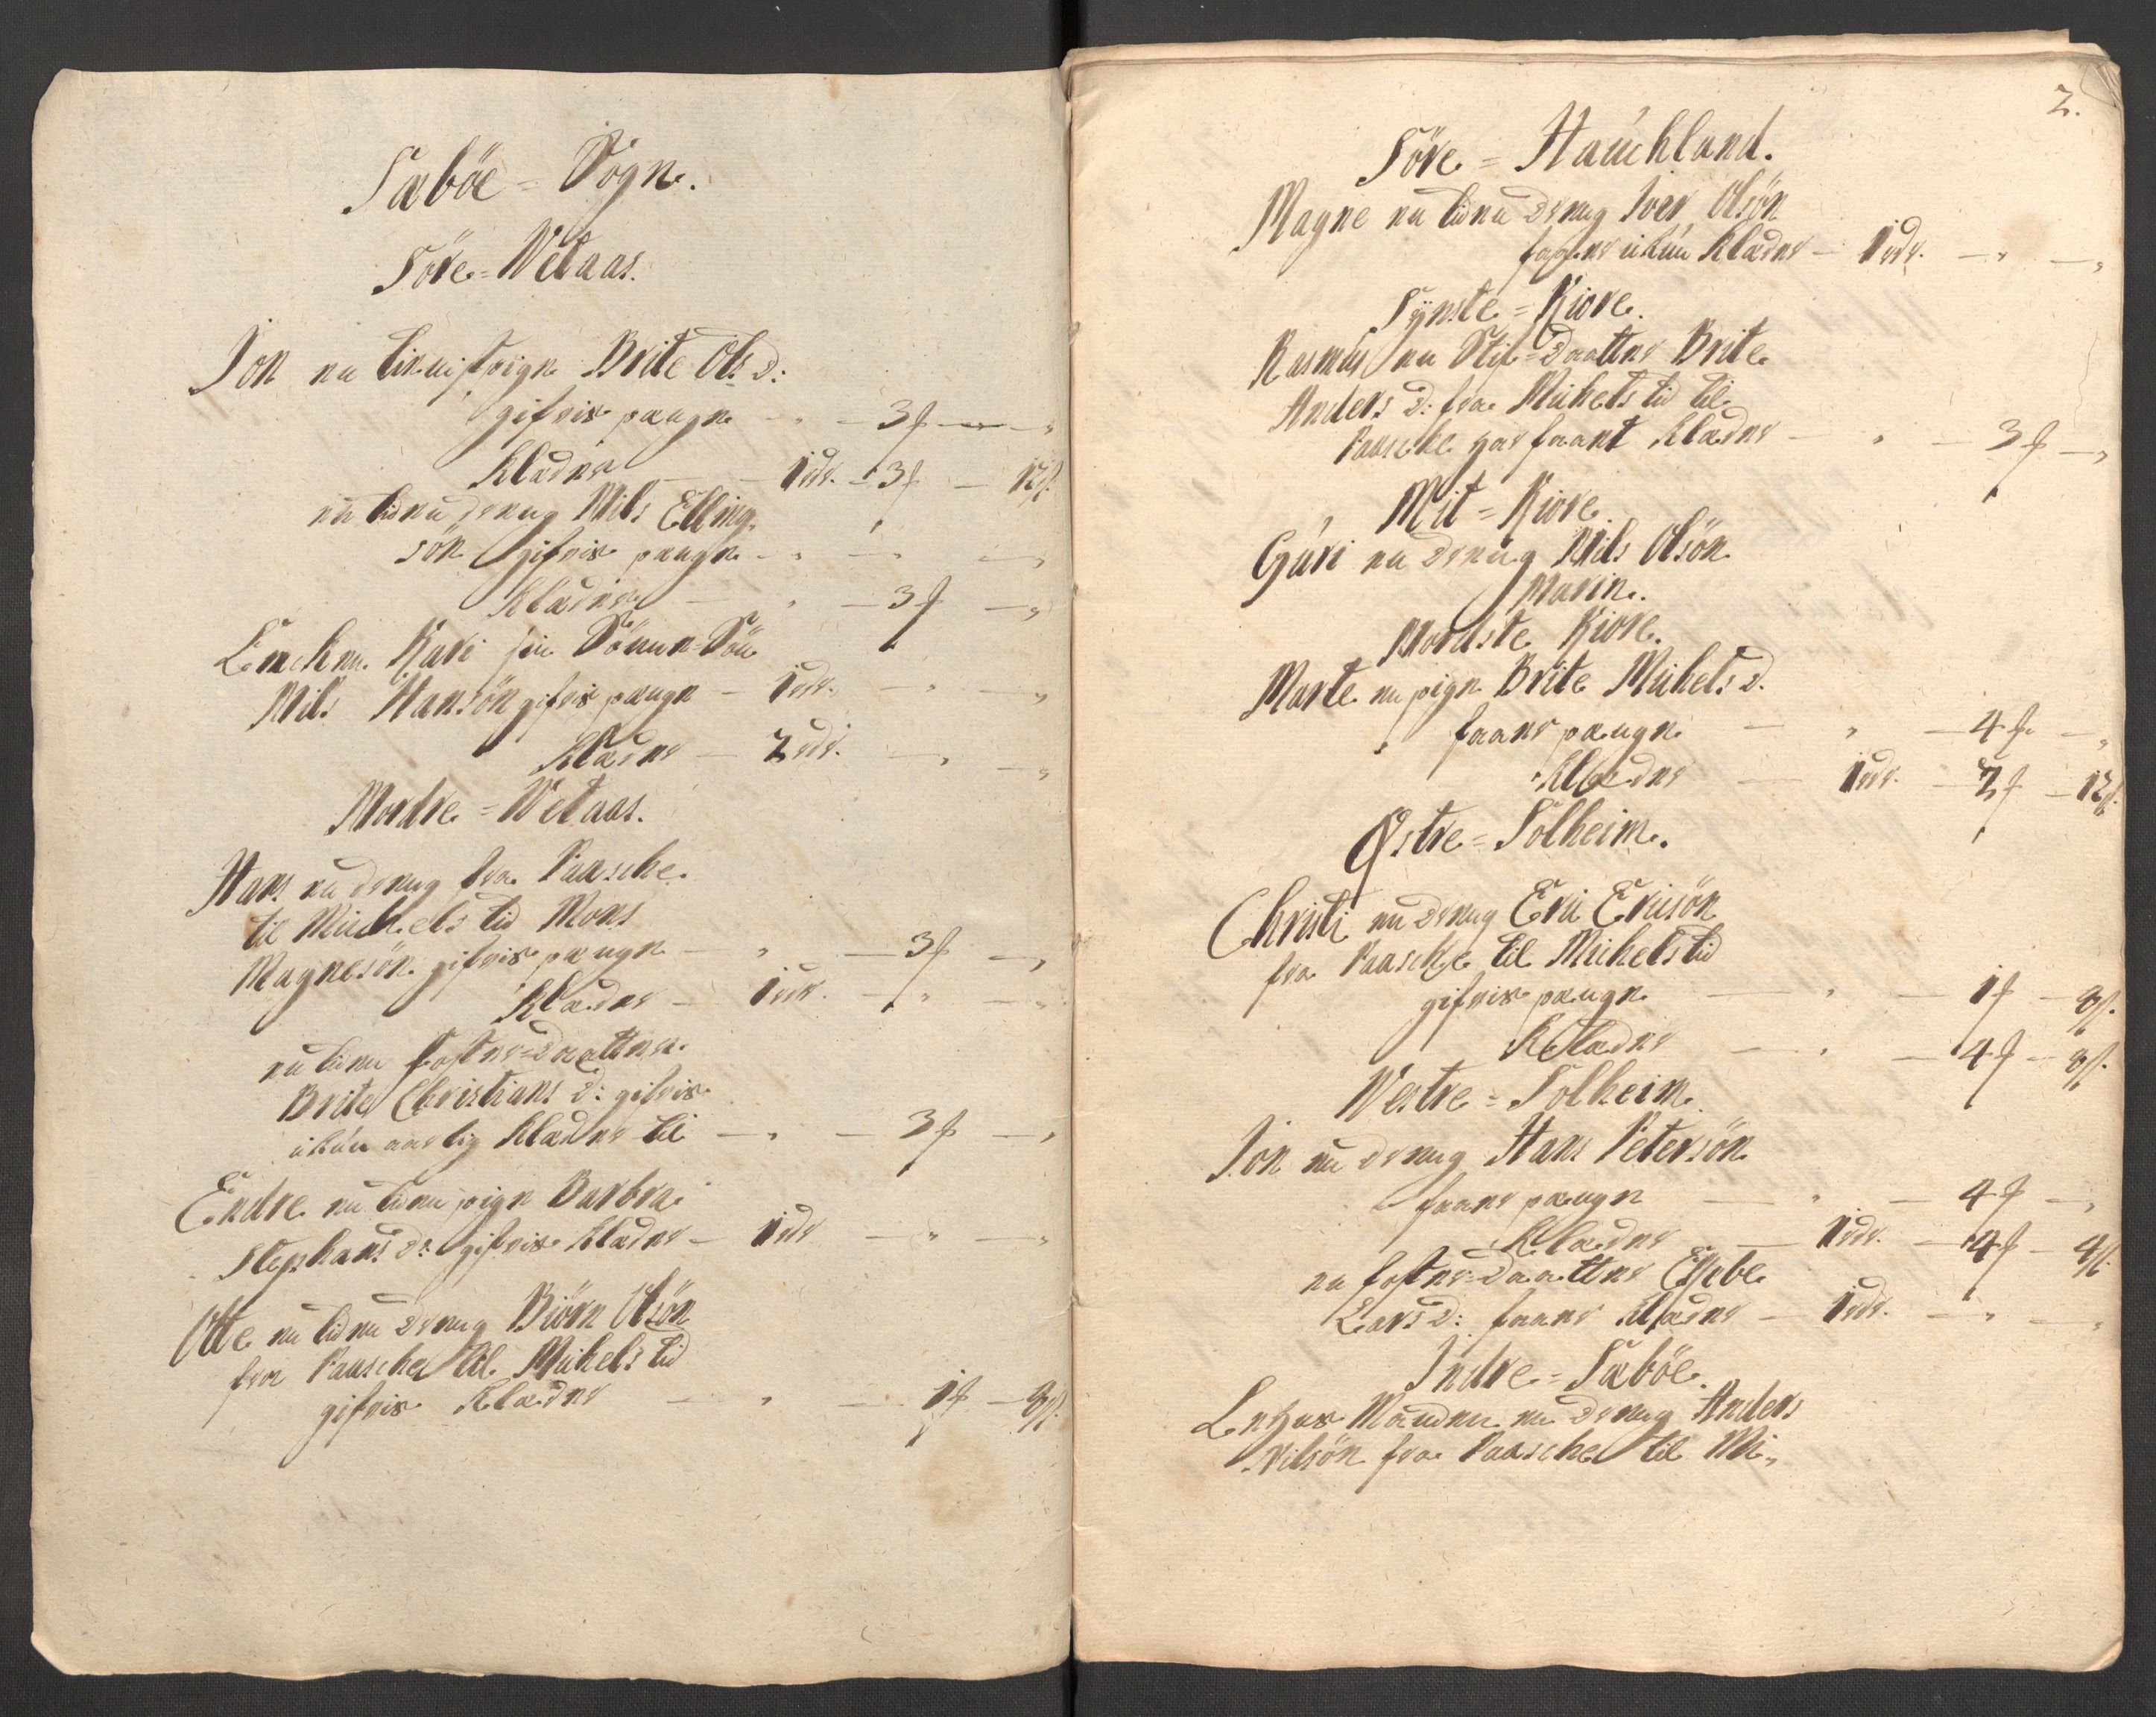 Sæböe = Sogn.
Söre = Wetaas.
Jon en tienistpige Brite Ols d:
gifvis penge - „ - 3 f - „
Klæder - 1 rdr. - 3 f - 12 s.
en liden dreng Nils Elling-
sön gifvis penge - „ - „ - „
Klæder - „ - 3 f - „
Enchen Kari sin Sönne-Sön
Nils Hansön gifvis penge - 1 rdr. - „ - „
Klæder - 2 rdr. - „ - „
Nordre = Wetaas.
Hans en dreng fra Paasche
til Michels tid Mons
Magnesön gifvis penge - „ - 3 f - „
Klæder - 1 rdr. - „ - „
en liden foster-daatter
Brite Christians d: gifvis
ikún aarlig Klæder til - „ - 3 f - „
Endre en liden pige Barbra
Stephans d: gifvis Klæder - 1 rdr - „ - „
Otte en liden dreng Biörn Olsön
fra Paasche til Michels tid
gifvis Klæder - „ - 1 f - 8 s.
2.
Söre = Haúchland.
Magne en liden dreng Iver Olsön
faar ikún Klæder - 1 rdr. - „ - „
Synste = Kiore.
Rasmús en Stif-Daatter Brite
Anders d: fra Michels tid til
Paasche har faaet Klæder - „ - 3 f - „
Mit = Kiore.
Gúri en dreng Nils Olsön
Marin.
Nordste Kiore.
Marte en pige Brite Michels d.
faar penge - „ - 4 f. - „
Klæder - 1 rdr. - 2 f - 12 s.
Østre = Solheim.
Christi en dreng Eric Ericsön
fra Paasche til Michels tid
gifvis penge - „ - 1 f - 8 s.
Klæder - „ - 4 f - 8 s.
Westre = Solheim.
Jon en dreng Hans Petersön
faar penge - „ - 4 f - „
Klæder - 1 rdr. - 4 f - 4 s.
en foster-daatter Elsebe
Lars d: faar Klæder - 1 rdr. - „ - „
Indre = Sæböe.
Lensmanden en dreng Anders
Nilsön fra Paasche til Mi-